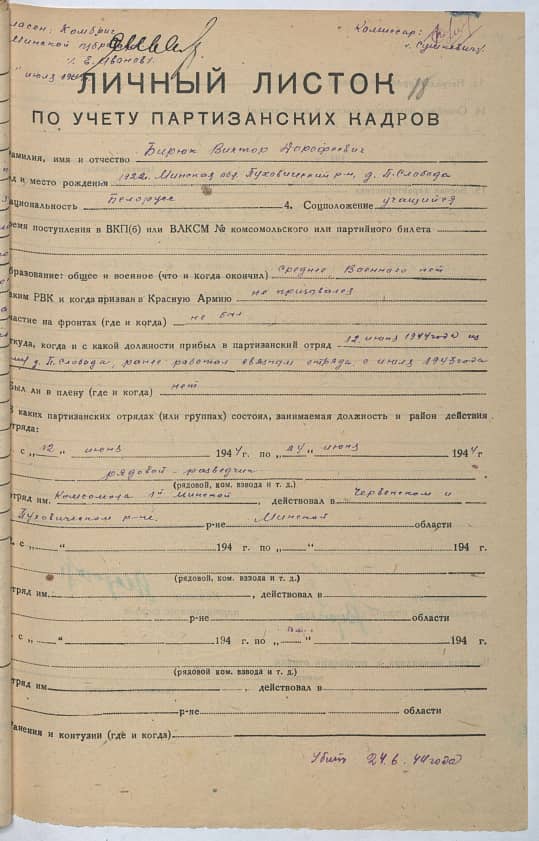 ласен: Комбриг
Минской
Иванов
" июля 194
Комиссар:
ЛИЧНЫЙ ЛИСТОК 18
ПО УЧЕТУ ПАРТИЗАНСКИХ КАДРОВ
Фамилия, имя и отчество Бирюк Виктор Дорофеевич
д и место рождения 1922г. Минская обл. Пуховический р-н, д. П. Слобода
ациональность Белорус 4. Соцположение учащийся
ремя поступления в ВКП(б) или ВЛКСМ № комсомольского или партийного билета
бразование: общее и военное (что и когда окончил) среднее Военного нет
аким РВК и когда призван в Красную Армию не призывался
частие на фронтах (где и когда) не был
ткуда, когда и с какой должности прибыл в партизанский отряд 12 июня 1944 года из
д. П. Слобода, ранее работал связным отряда с июля 1943 года
Был ли в плену (где и когда) нет
В каких партизанских отрядах (или группах) состоял, занимаемая должность и район действия
отряда:
с „12" июня 1944 г. по „24" июня 1944 г
рядовой - разведчик
(рядовой, ком. взвода и т. д.)
отряд им. Комсомола 1й Минской, действовал в Червенском и
Пуховическом р-не. р-не Минской области
. с „ " 194 г. по „ " 194 г.
(рядовой, ком. взвода и т. д.)
тряд им. , действовал в
р-не области
. с „ " 194 г. по „ " 194 г.
(рядовой, ком. взвода и т. д.)
тряд им. , действовал в
р-не области
анения и контузии (где и когда)
Убит 24.6.44 года